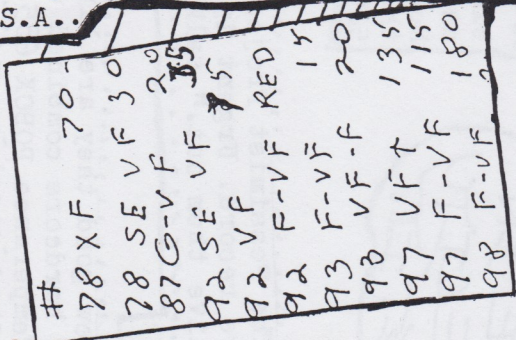 S.A..
#
78 XF 70-
78 SE VF 30
87 G-VF 20
92 SE VF
92 VF 75
92 F-VF RED
93 F-VF 15
93 VF-F 20
97 VF↑ 135
97 F-VF 115
98 F-VF 180